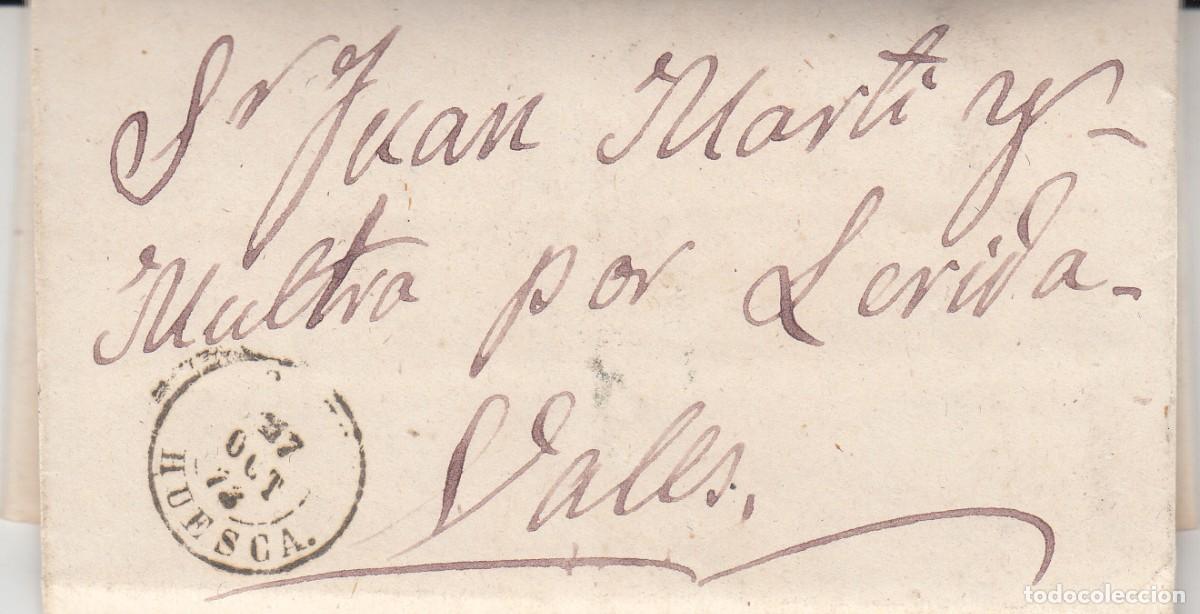 Sr Juan Marti y-
Multra por Lerida-
Valls.
27
OCT
HUESCA.
todocoleccion